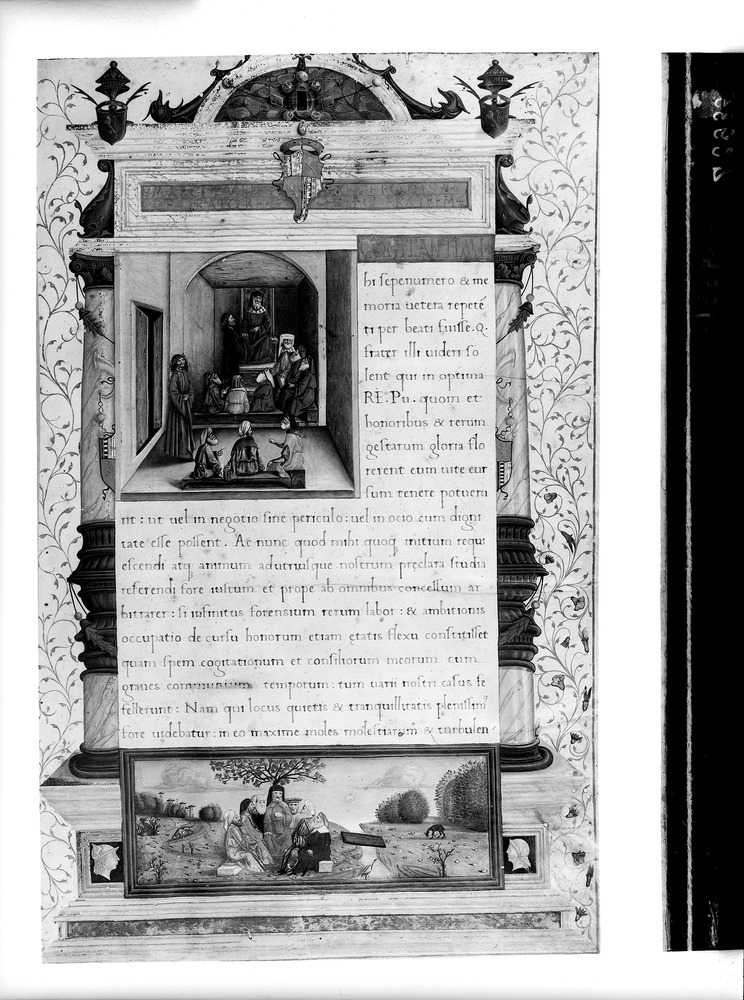 COGITANTI MI
hi sepenumero & me
moria uetera repetē
ti per beati fuisse .Q.
frater illi uideri so
lent qui in optima
RE. Pu. quom et
honoribus & rerum
gestarum gloria flo
rerent eum uite cur
sum tenere potueru
nt: ut uel in negotio sine periculo: uel in ocio cum digni
tate esse possent. Ac nunc quod mihi quoq initium requi
escendi atq animum ad utriusque nostrum pręclara studia
referendi fore iustum et prope ab omnibus concessum ar
bitrarer: si infinitus forensium rerum labor: & ambitionis
occupatio de cursu honorum etiam ętatis flexu constitisset
quam spem cogitationum et consiliorum meorum cum
graues communium temporum: tum uarii nostri casus fe
fellerunt: Nam qui locus quietis & tranquillitatis plenissim⁹
fore uidebatur: in eo maxime moles molestiarum & turbulen